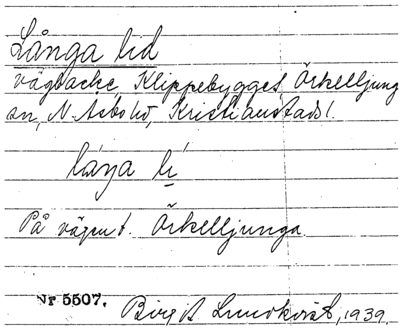 Långa lid
vägbacke, Klippebygget, Örkelljung
sn, N. Åsbo hd, Kristianstads l.
láŋa lí
På väg mt. Örkelljunga.
Nr 5507.
Birgit Lundkvist, 1939.